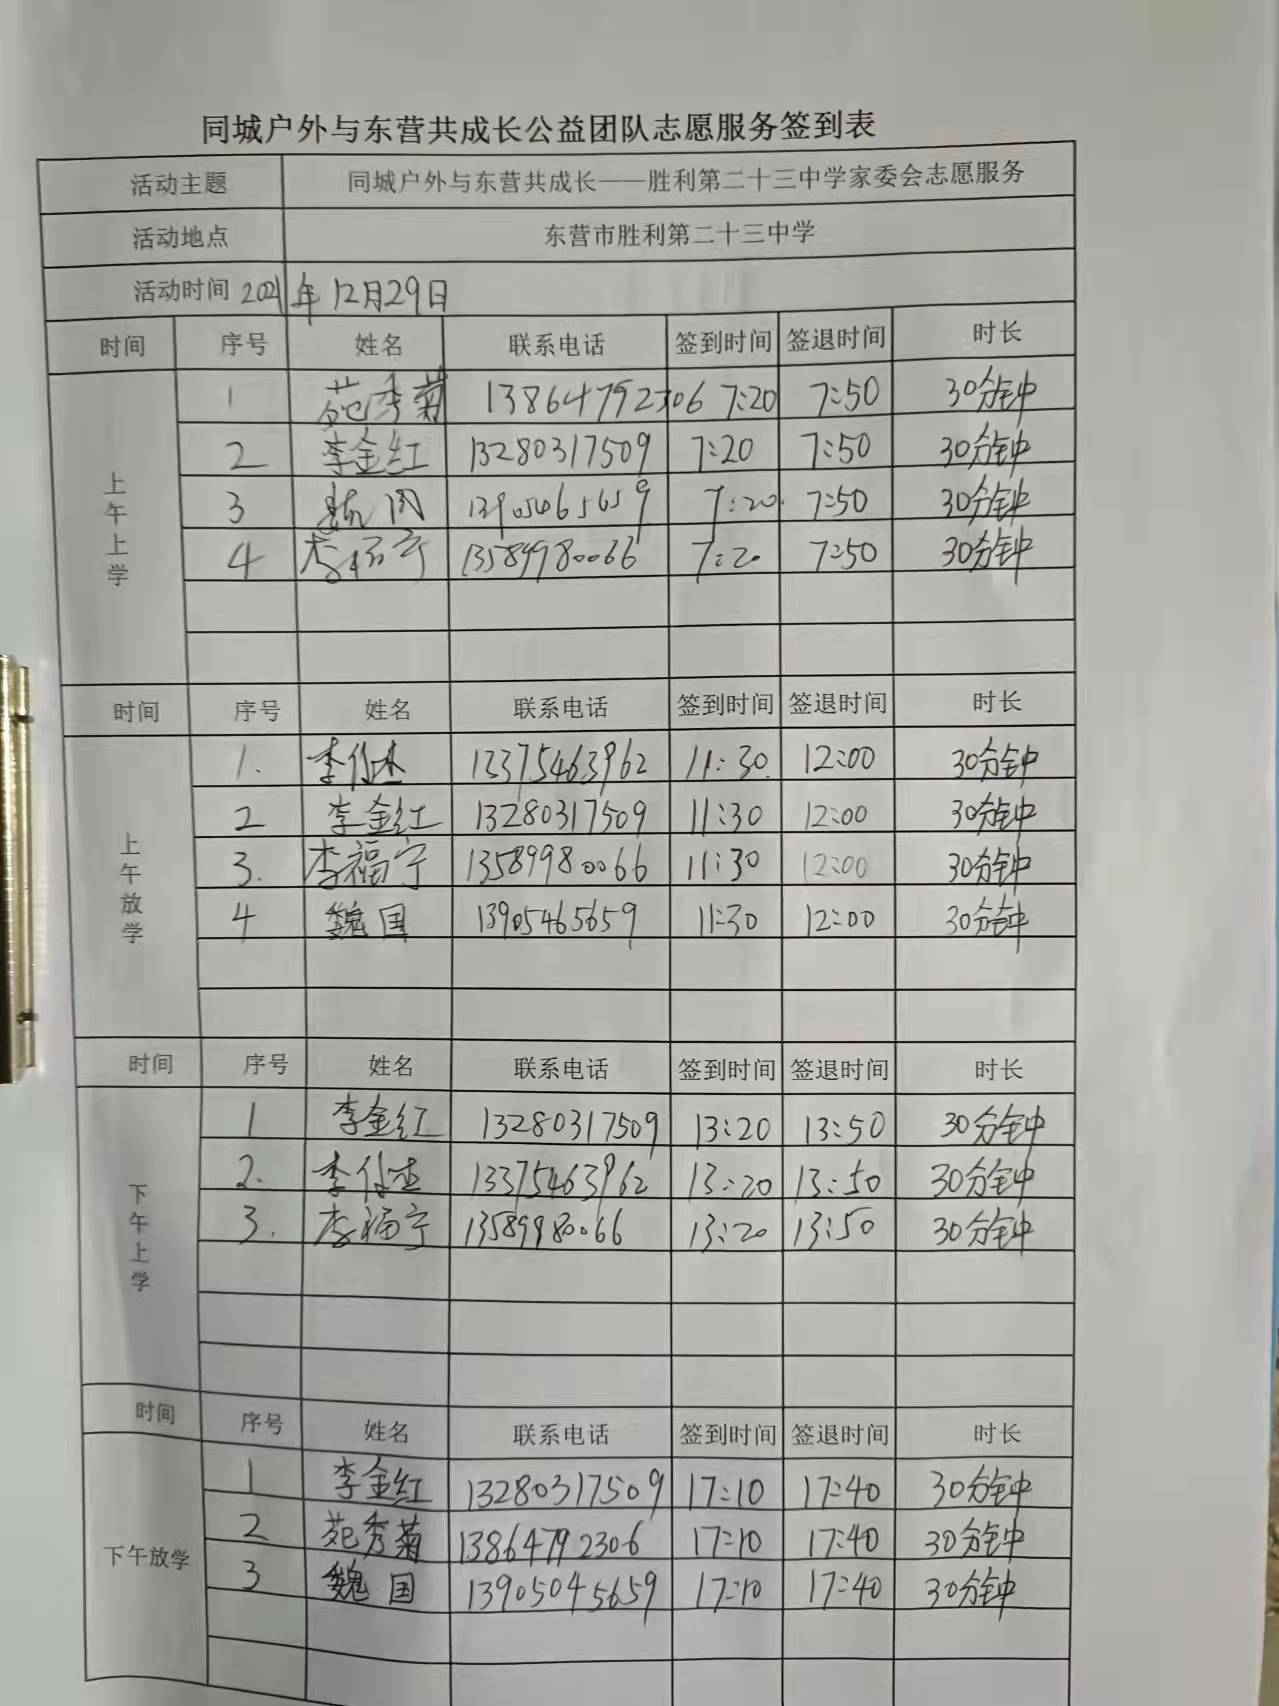 同城户外与东营共成长公益团队志愿服务签到表
活动主题 同城户外与东营共成长——胜利第二十三中学家委会志愿服务
活动地点 东营市胜利第二十三中学
活动时间 2021年12月29日
时间 序号 姓名 联系电话 签到时间 签退时间 时长
上午上学
1 苑秀菊 13864792306 7:20 7:50 30分钟
2 李金红 13280317509 7:20 7:50 30分钟
3 魏国 13905465659 7:20 7:50 30分钟
4 李福宁 13589980066 7:20 7:50 30分钟
时间 序号 姓名 联系电话 签到时间 签退时间 时长
上午放学
1. 李 13375463962 11:30 12:00 30分钟
2 李金红 13280317509 11:30 12:00 30分钟
3. 李福宁 13589980066 11:30 12:00 30分钟
4 魏国 13905465659 11:30 12:00 30分钟
时间 序号 姓名 联系电话 签到时间 签退时间 时长
下午上学
1 李金红 13280317509 13:20 13:50 30分钟
2. 李 13375463962 13:20 13:50 30分钟
3. 李福宁 13589980066 13:20 13:50 30分钟
时间 序号 姓名 联系电话 签到时间 签退时间 时长
下午放学
1 李金红 13280317509 17:10 17:40 30分钟
2 苑秀菊 13864792306 17:10 17:40 30分钟
3 魏国 13905045659 17:10 17:40 30分钟